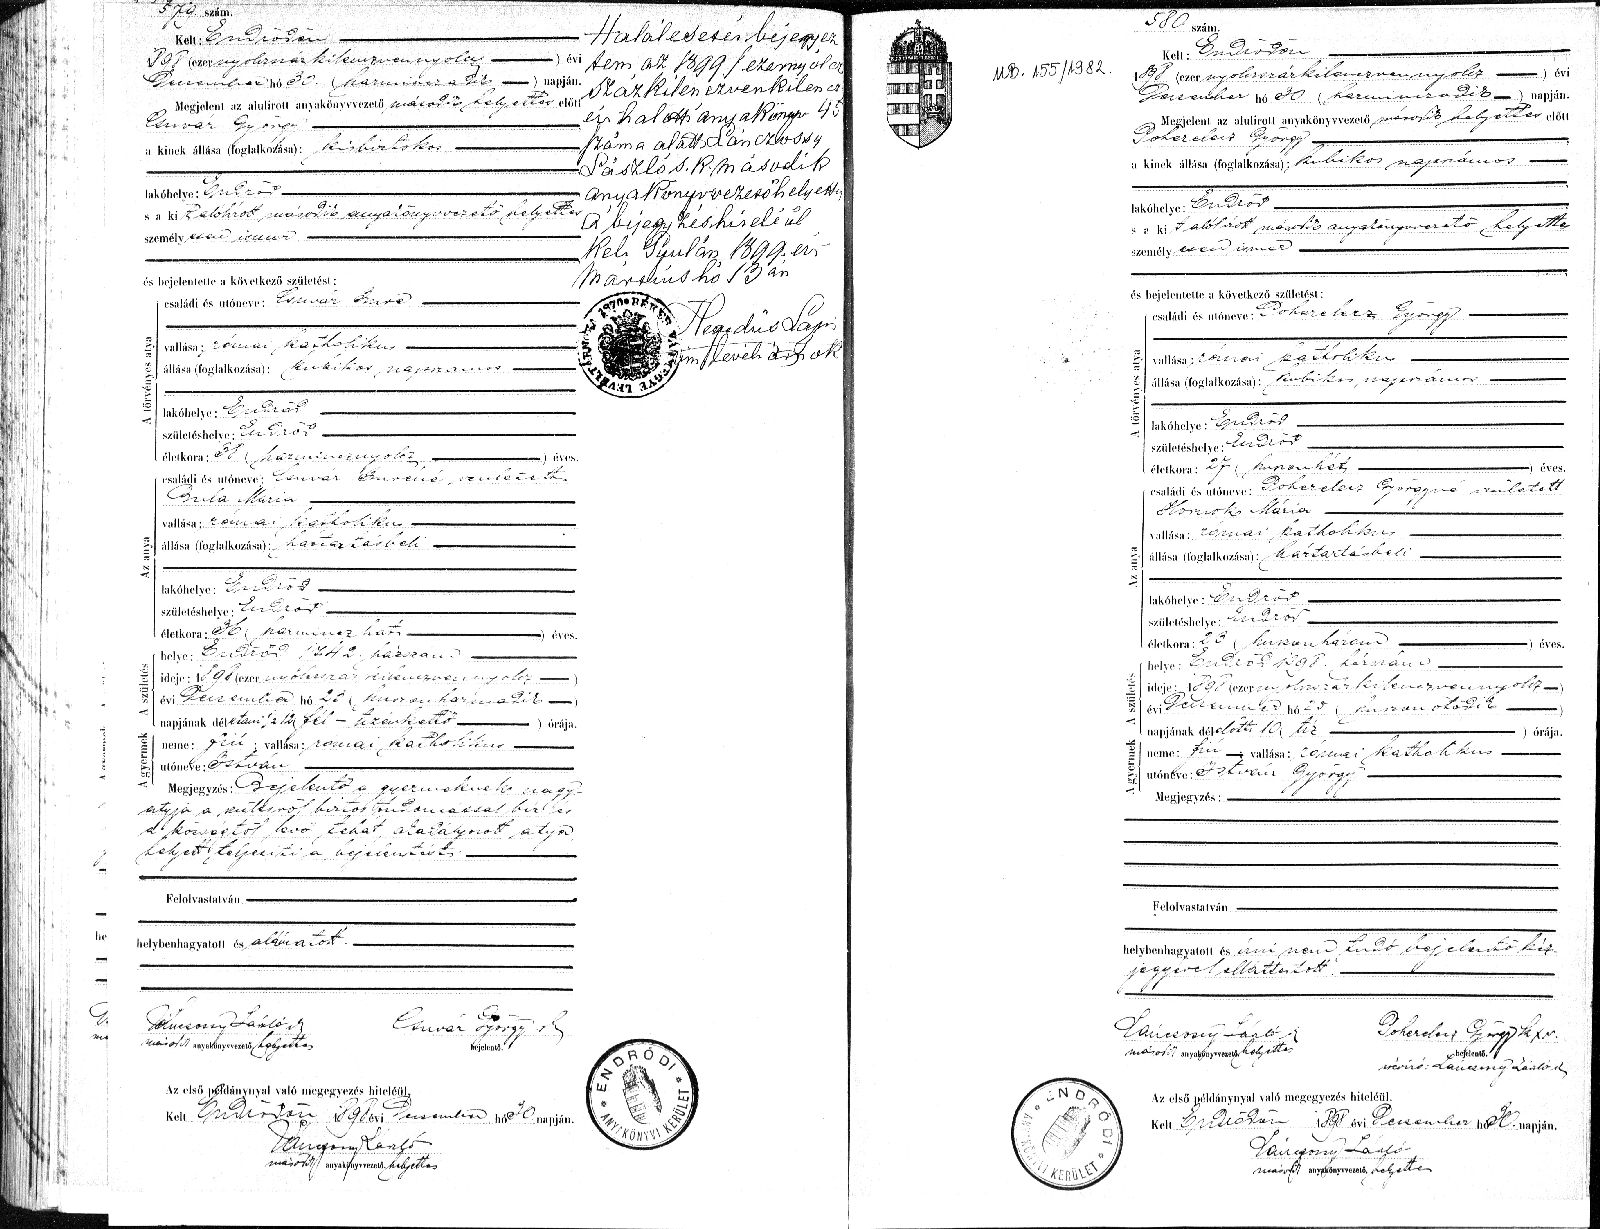 579 szám.
Kelt: Endrődön
1898 (ezer nyolcszázkilenczvennyolcz) évi
December hó 30 (harminczadik) napján.
Megjelent az alulirott anyakönyvvezető második helyettes előtt
Csuvár György
a kinek állása (foglalkozása): kisbirtokos
lakóhelye: Endrőd
s a kit alólirott második anyakönyvvezető helyettes
személyesen ismer
és bejelentette a következő születést:
A törvényes atya
családi és utóneve: Csuvár Imre
vallása: római katholikus
állása (foglalkozása): kubikos napszámos
lakóhelye: Endrőd
születéshelye: Endrőd
életkora: 38 (harmincznyolcz) éves.
Az anya
családi és utóneve: Csuvár Imréné született
Gula Mária
vallása: római katholikus
állása (foglalkozása): háztartásbeli
lakóhelye: Endrőd
születéshelye: Endrőd
életkora: 36 (harmincz hat) éves.
A születés
helye: Endrőd 1742. házszám
ideje: 1898 (ezer nyolcszáz kilenczvennyolcz)
évi December hó 23 (huszonharmadik)
napjának délutáni ½12 fél-tizenkettő órája.
A gyermek
neme: fiú; vallása: római katholikus
utóneve: István
Megjegyzés: Bejelentő a gyermeknek nagy-
atyja a szülésről biztos tudomással bir és
a községtől távol lévő atya
helyett teljesiti a bejelentést.
Felolvastatván,
helybenhagyatott és aláiratott.
Lánczony László sk
másod. anyakönyvvezető helyettes
Csuvár György sk
bejelentő.
Az első példánynyal való megegyezés hiteléül.
Kelt Endrődön 1898 évi December hó 30 napján.
Lánczony László
másod. anyakönyvvezető helyettes
ENDRŐDI ANYAKÖNYVI KERÜLET
Halálesetén bejegyez
tem az 1899 / ezernyolcz
százkilenczvenkilencz
évi halotti anyakönyv 45
száma alatt. Lánczossy
László s. k. második
anyakönyvvezetőhelyettes
A bejegyzés hiteléül
Kelt Gyulán, 1899. évi
Március hó 13án
Hegedüs Lajos
MD. 155/1982.
580 szám.
Kelt: Endrődön
1898 (ezer nyolcszázkilenczvennyolcz) évi
December hó 30 (harminczadik) napján.
Megjelent az alulirott anyakönyvvezető második helyettes előtt
Poherelecz György
a kinek állása (foglalkozása): kubikos napszámos
lakóhelye: Endrőd
s a kit alólirott második anyakönyvvezető helyettes
személyesen ismer
és bejelentette a következő születést:
A törvényes atya
családi és utóneve: Poherelecz György
vallása: római katholikus
állása (foglalkozása): kubikos napszámos
lakóhelye: Endrőd
születéshelye: Endrőd
életkora: 27 (huszonhét) éves.
Az anya
családi és utóneve: Poherelecz Györgyné született
Hornok Mária
vallása: római katholikus
állása (foglalkozása): háztartásbeli
lakóhelye: Endrőd
születéshelye: Endrőd
életkora: 23 (huszonhárom) éves.
A születés
helye: Endrőd 1898. házszám
ideje: 1898 (ezer nyolcszázkilenczvennyolcz)
évi December hó 25 (huszonötödik)
napjának délelőtti 10 tíz órája.
A gyermek
neme: fiú; vallása: római katholikus
utóneve: István György
Megjegyzés:
Felolvastatván
helybenhagyatott és irni nem tudó bejelentő kéz-
jegyével elláttatott.
Lánczony László sk
másod. anyakönyvvezető helyettes
Poherelecz György
bejelentő.
névíró: Lánczony László sk
Az első példánynyal való megegyezés hiteléül.
Kelt Endrődön 1898 évi December hó 30. napján.
Lánczony László
másod. anyakönyvvezető helyettes
ENDRŐDI ANYAKÖNYVI KERÜLET